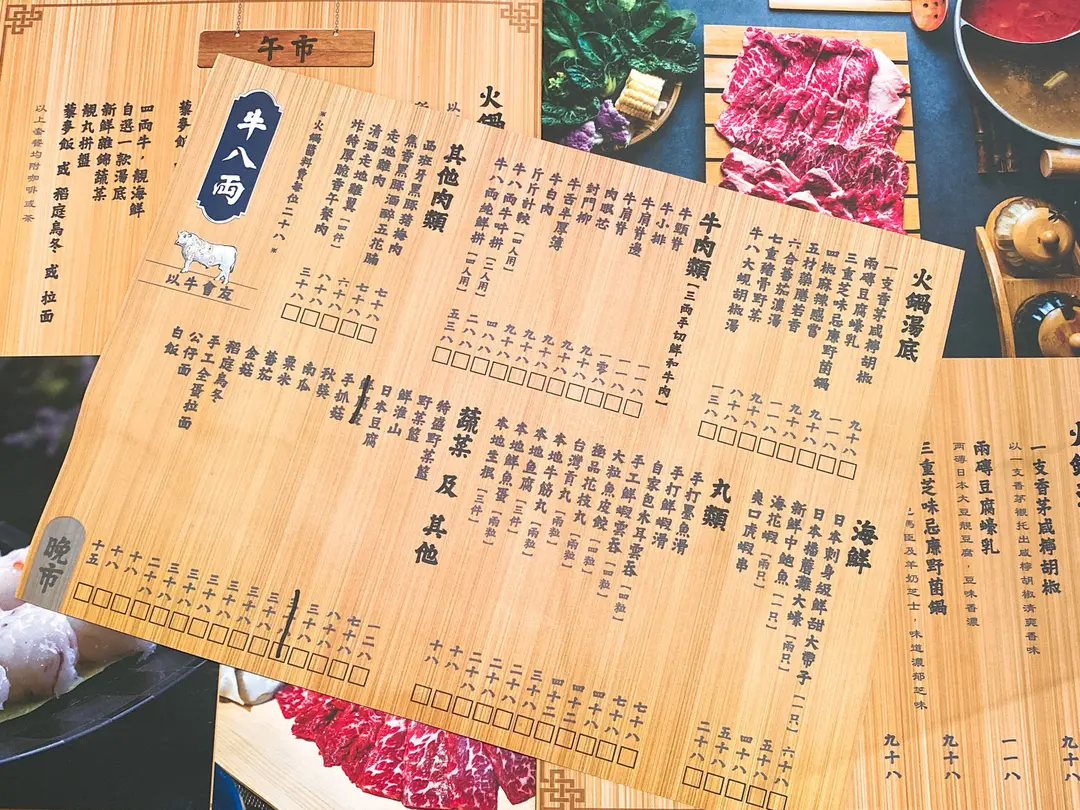 牛八両
以牛會友
晚市
火鍋湯底
一支香茅咸檸胡椒
兩磚豆腐蠔乳
三重芝味忌廉野菌鍋
四椒麻辣感嘗
五材藥膳若香
六合蕃茄濃湯
七重豬骨野菜
牛八大蜆胡椒湯
九十八
一一八
九十八
九十八
一一八
九十八
八十八
一三八
牛肉類 [三両手切鮮和牛肉]
牛頸脊
牛小排
牛肩脊
牛肩脊邊
肉眼芯
封門柳
牛舌厚薄
牛白肉
斤斤計較 [四人用]
牛八両牛叶拼 [二人用]
牛八両純鮮拼 [四人用]
一一八
一一八
一零八
九十八
九十八
九十八
九十八
四八八
二八八
五三八
其他肉類
西班牙黑豚豬梅肉
魚香黑豚肉酒醉五花腩
走地雞肉
清酒走地雞翼 [四件]
炸特厚脆香午餐肉
*火鍋醬料費每位二十八*
七十八
七十八
六十八
八十八
三十八
海鮮
日本刺身級鮮甜大帶子 [一只]
日本播磨灘大蠔 [兩只]
新鮮中鮑魚 [一只]
海花蝦 [兩只]
爽口虎蝦串
六十八
五十八
四十八
五十八
二十八
丸類
手打墨魚滑
手打鮮蝦滑
自家包木耳雲吞 [四粒]
手工鮮蝦雲吞 [四粒]
大粒魚皮餃 [四粒]
極品花枝丸 [四粒]
台灣貢丸 [兩粒]
本地牛筋丸 [兩粒]
本地魚腐 [三件]
本地鮮魚蛋 [兩粒]
本地生根 [三件]
七十八
七十八
四十八
四十二
四十二
三十八
二十八
二十八
十八
十八
蔬菜 及 其他
特盛野菜籃
野菜籃
鮮淮山
日本豆腐
手抓菇
秋葵
南瓜
粟米
蕃茄
金菇
稻庭烏冬
手工全蛋拉面
公仔面
白飯
一二八
七十八
三十八
三十八
三十八
三十八
三十八
三十八
三十八
二十八
十八
十八
十五
午市
火鍋
四両牛，靚海鮮
自選一款湯底
新鮮雜錦蔬菜
靚丸拼盤
藜麥飯 或 稻庭烏冬 或 拉面
以上套餐均附咖啡或茶
藜麥飯
一支香茅咸檸胡椒
以一支香茅襯托出咸檸胡椒清爽香味
兩磚豆腐蠔乳
兩磚日本大豆靚豆腐，豆味香濃
三重芝味忌廉野菌鍋
馬臣及羊奶芝士，味道濃郁芝味
九十八
一一八
九十八
九十八